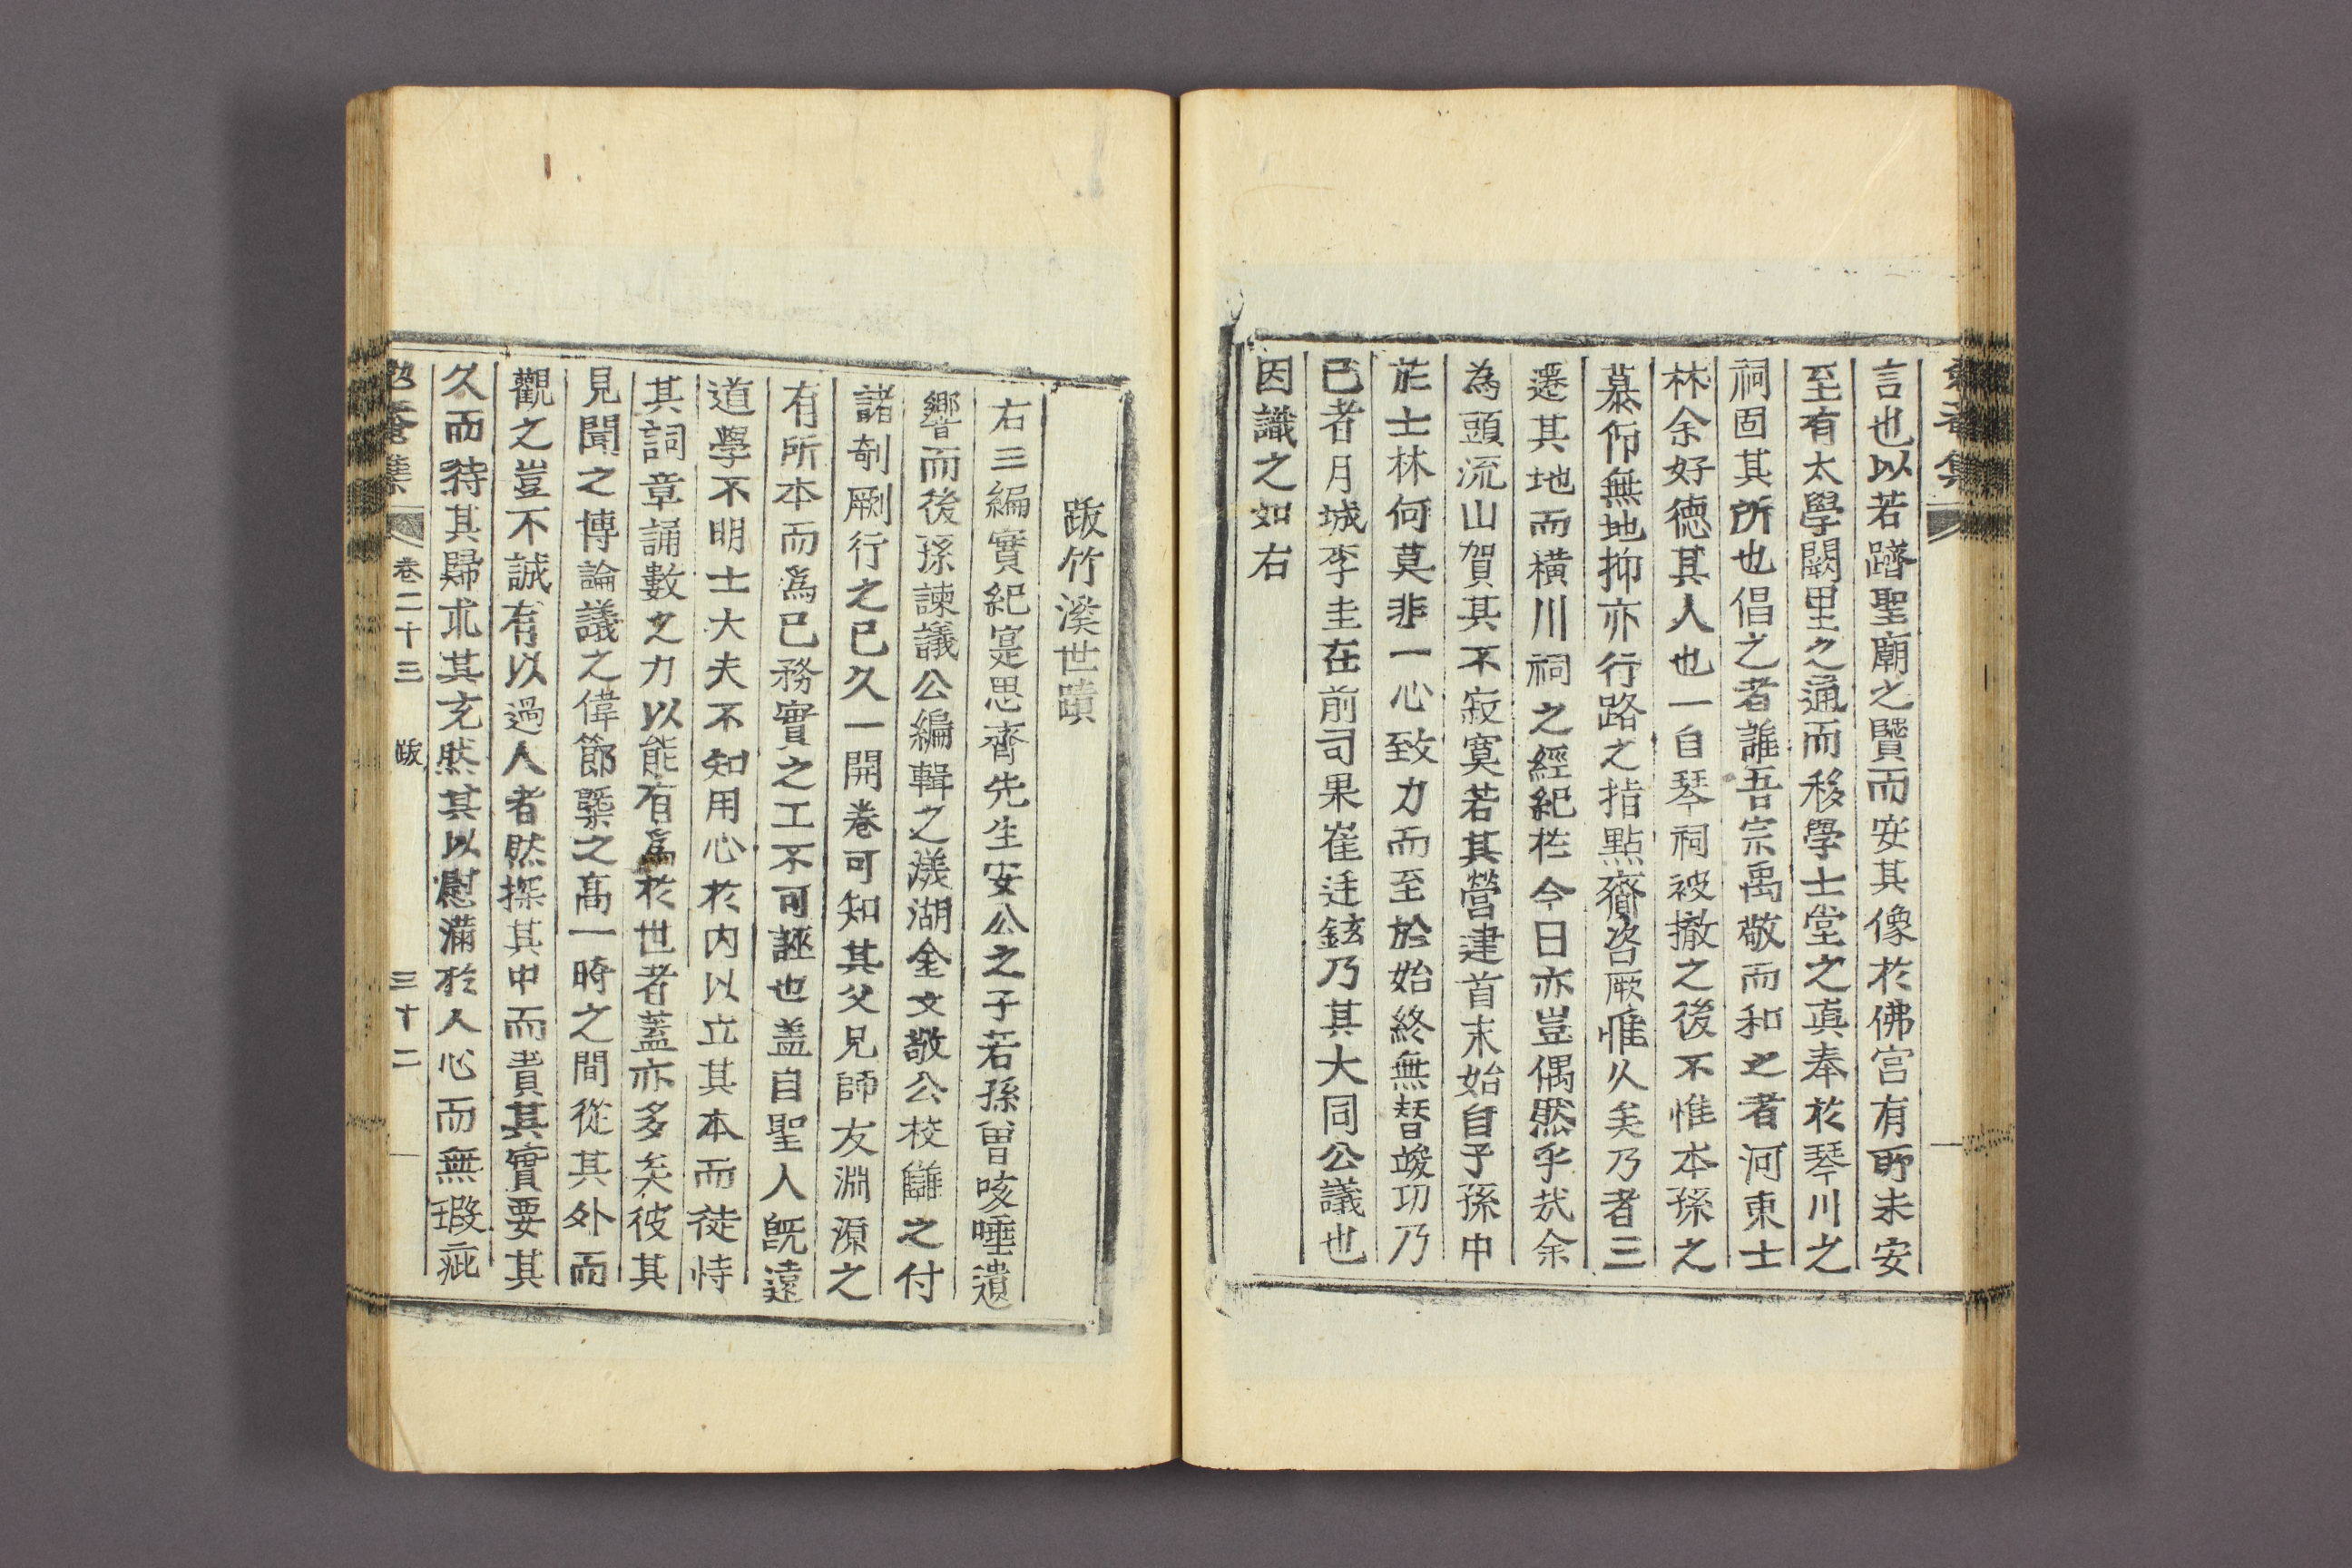 勉菴集
言也以若躋聖廟之賢而安其像於佛宮有所未安
至有太學闕里之通而移學士堂之眞奉於琴川之
祠固其所也倡之者誰吾宗禹敬而和之者河東士
林余好德其人也一自琴祠被撤之後不惟本孫之
慕仰無地抑亦行路之指點齎咨厥惟久矣乃者三
遷其地而橫川祠之經紀在今日亦豈偶然乎㢤余
為頭流山賀其不寂寞若其營建首末始自子孫中
於士林何莫非一心致力而至於始終無替竣功乃
已者月城李圭在前司果崔廷鉉乃其大同公議也
因識之如右
跋竹溪世蹟
右三編實紀寔思齊先生安公之子若孫曾咳唾遺
響而後孫諫議公編輯之渼湖金文敬公校讎之付
諸剞劂行之已久一開卷可知其父兄師友淵源之
有所本而爲己務實之工不可誣也盖自聖人旣遠
道學不明士大夫不知用心於内以立其本而徒恃
其詞章誦數之力以能有爲於世者蓋亦多矣彼其
見聞之博論議之偉節槩之高一時之間從其外而
觀之豈不誠有以過人者然探其中而責其實要其
久而待其歸求其充然其以慰滿於人心而無瑕疵
勉菴集 卷二十三 跋 三十二